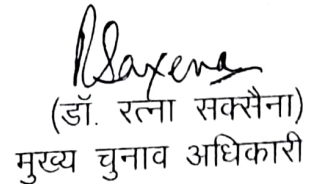 RSaxena
(डॉ. रत्ना सक्सैना)
मुख्य चुनाव अधिकारी